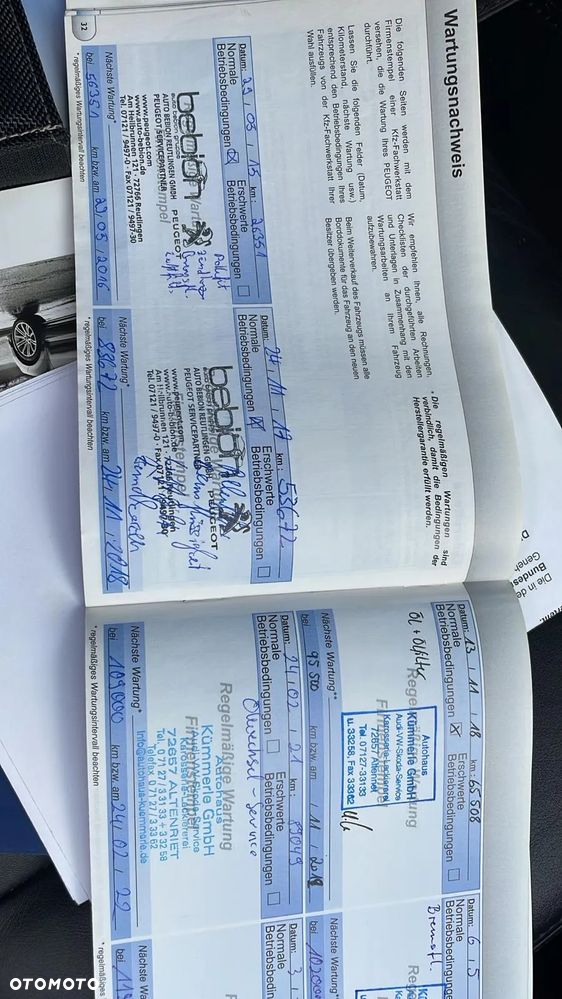 Wartungsnachweis
Die folgenden Seiten werden mit dem
Firmenstempel einer Kfz-Fachwerkstatt
versehen, die die Wartung Ihres PEUGEOT
durchführt.
Lassen Sie die folgenden Felder (Datum,
Kilometerstand, nächste Wartung usw.)
entsprechend den Betriebsbedingungen Ihres
Fahrzeugs von der Kfz-Fachwerkstatt Ihrer
Wahl ausfüllen.
Wir empfehlen Ihnen, alle Rechnungen,
Checklisten der durchgeführten Arbeiten
und Unterlagen in Zusammenhang mit den
Wartungsarbeiten an Ihrem Fahrzeug
aufzubewahren.
Beim Weiterverkauf des Fahrzeugs müssen alle
Borddokumente für das Fahrzeug an den neuen
Besitzer übergeben werden.
* Die regelmäßigen Wartungen sind
verbindlich, damit die Bedingungen der
Herstellergarantie erfüllt werden.
Datum: 29, 05, 15 km: 26351
Normale Erschwerte
Betriebsbedingungen Betriebsbedingungen
bebion
PEUGEOT
AUTO BEBION REUTLINGEN GMBH
PEUGEOT SERVICEPARTNER
www.peugeot.com
www.auto-bebion.de
Am Heilbrunnen 121 - 72766 Reutlingen
Tel. 07121 / 9497-0 - Fax 07121 / 9497-30
Nächste Wartung*
bei 56351 km bzw. am 29, 05, 2016
* regelmäßiges Wartungsintervall beachten
32
Datum: 24, 11, 17 km: 58672
Normale Erschwerte
Betriebsbedingungen Betriebsbedingungen
bebion
PEUGEOT
AUTO BEBION REUTLINGEN GMBH
PEUGEOT SERVICEPARTNER
www.auto-bebion.de
Am Heilbrunnen 121
Tel. 07121 / 9497-0
Nächste Wartung*
bei 88672 km bzw. am 24, 11, 2018
* regelmäßiges Wartungsintervall beachten
Datum: 13, 11, 18 km: 65508
Normale Erschwerte
Betriebsbedingungen Betriebsbedingungen
Öl + Ölfilter
Autohaus
Kümmerle GmbH
Audi-VW-Skoda-Service
Karosserie-Lackiererei
72657 Altenriet
Tel. 07127-33133
u. 33258, Fax 33362
Nächste Wartung*
bei 95500 km bzw. am
Datum: 24, 02, 21 km: 89049
Normale Erschwerte
Betriebsbedingungen Betriebsbedingungen
Ölwechsel-Service
Regelmäßige Wartung
Autohaus
Kümmerle GmbH
72657 ALTENRIET
Tel. 07127/33133 + 33258
info@autohaus-kuemmerle.de
Nächste Wartung*
bei 109000 km bzw. am 24, 02, 22
* regelmäßiges Wartungsintervall beachten
Datum: 6, 5
Normale
Betriebsbedingungen
Nächste Wartung*
Datum: 3
Normale
Betriebsbedingungen
Nächste Wartung*
bei
* regelmäßiges
Die in de
Bundes
Geneh
OTOMOTO